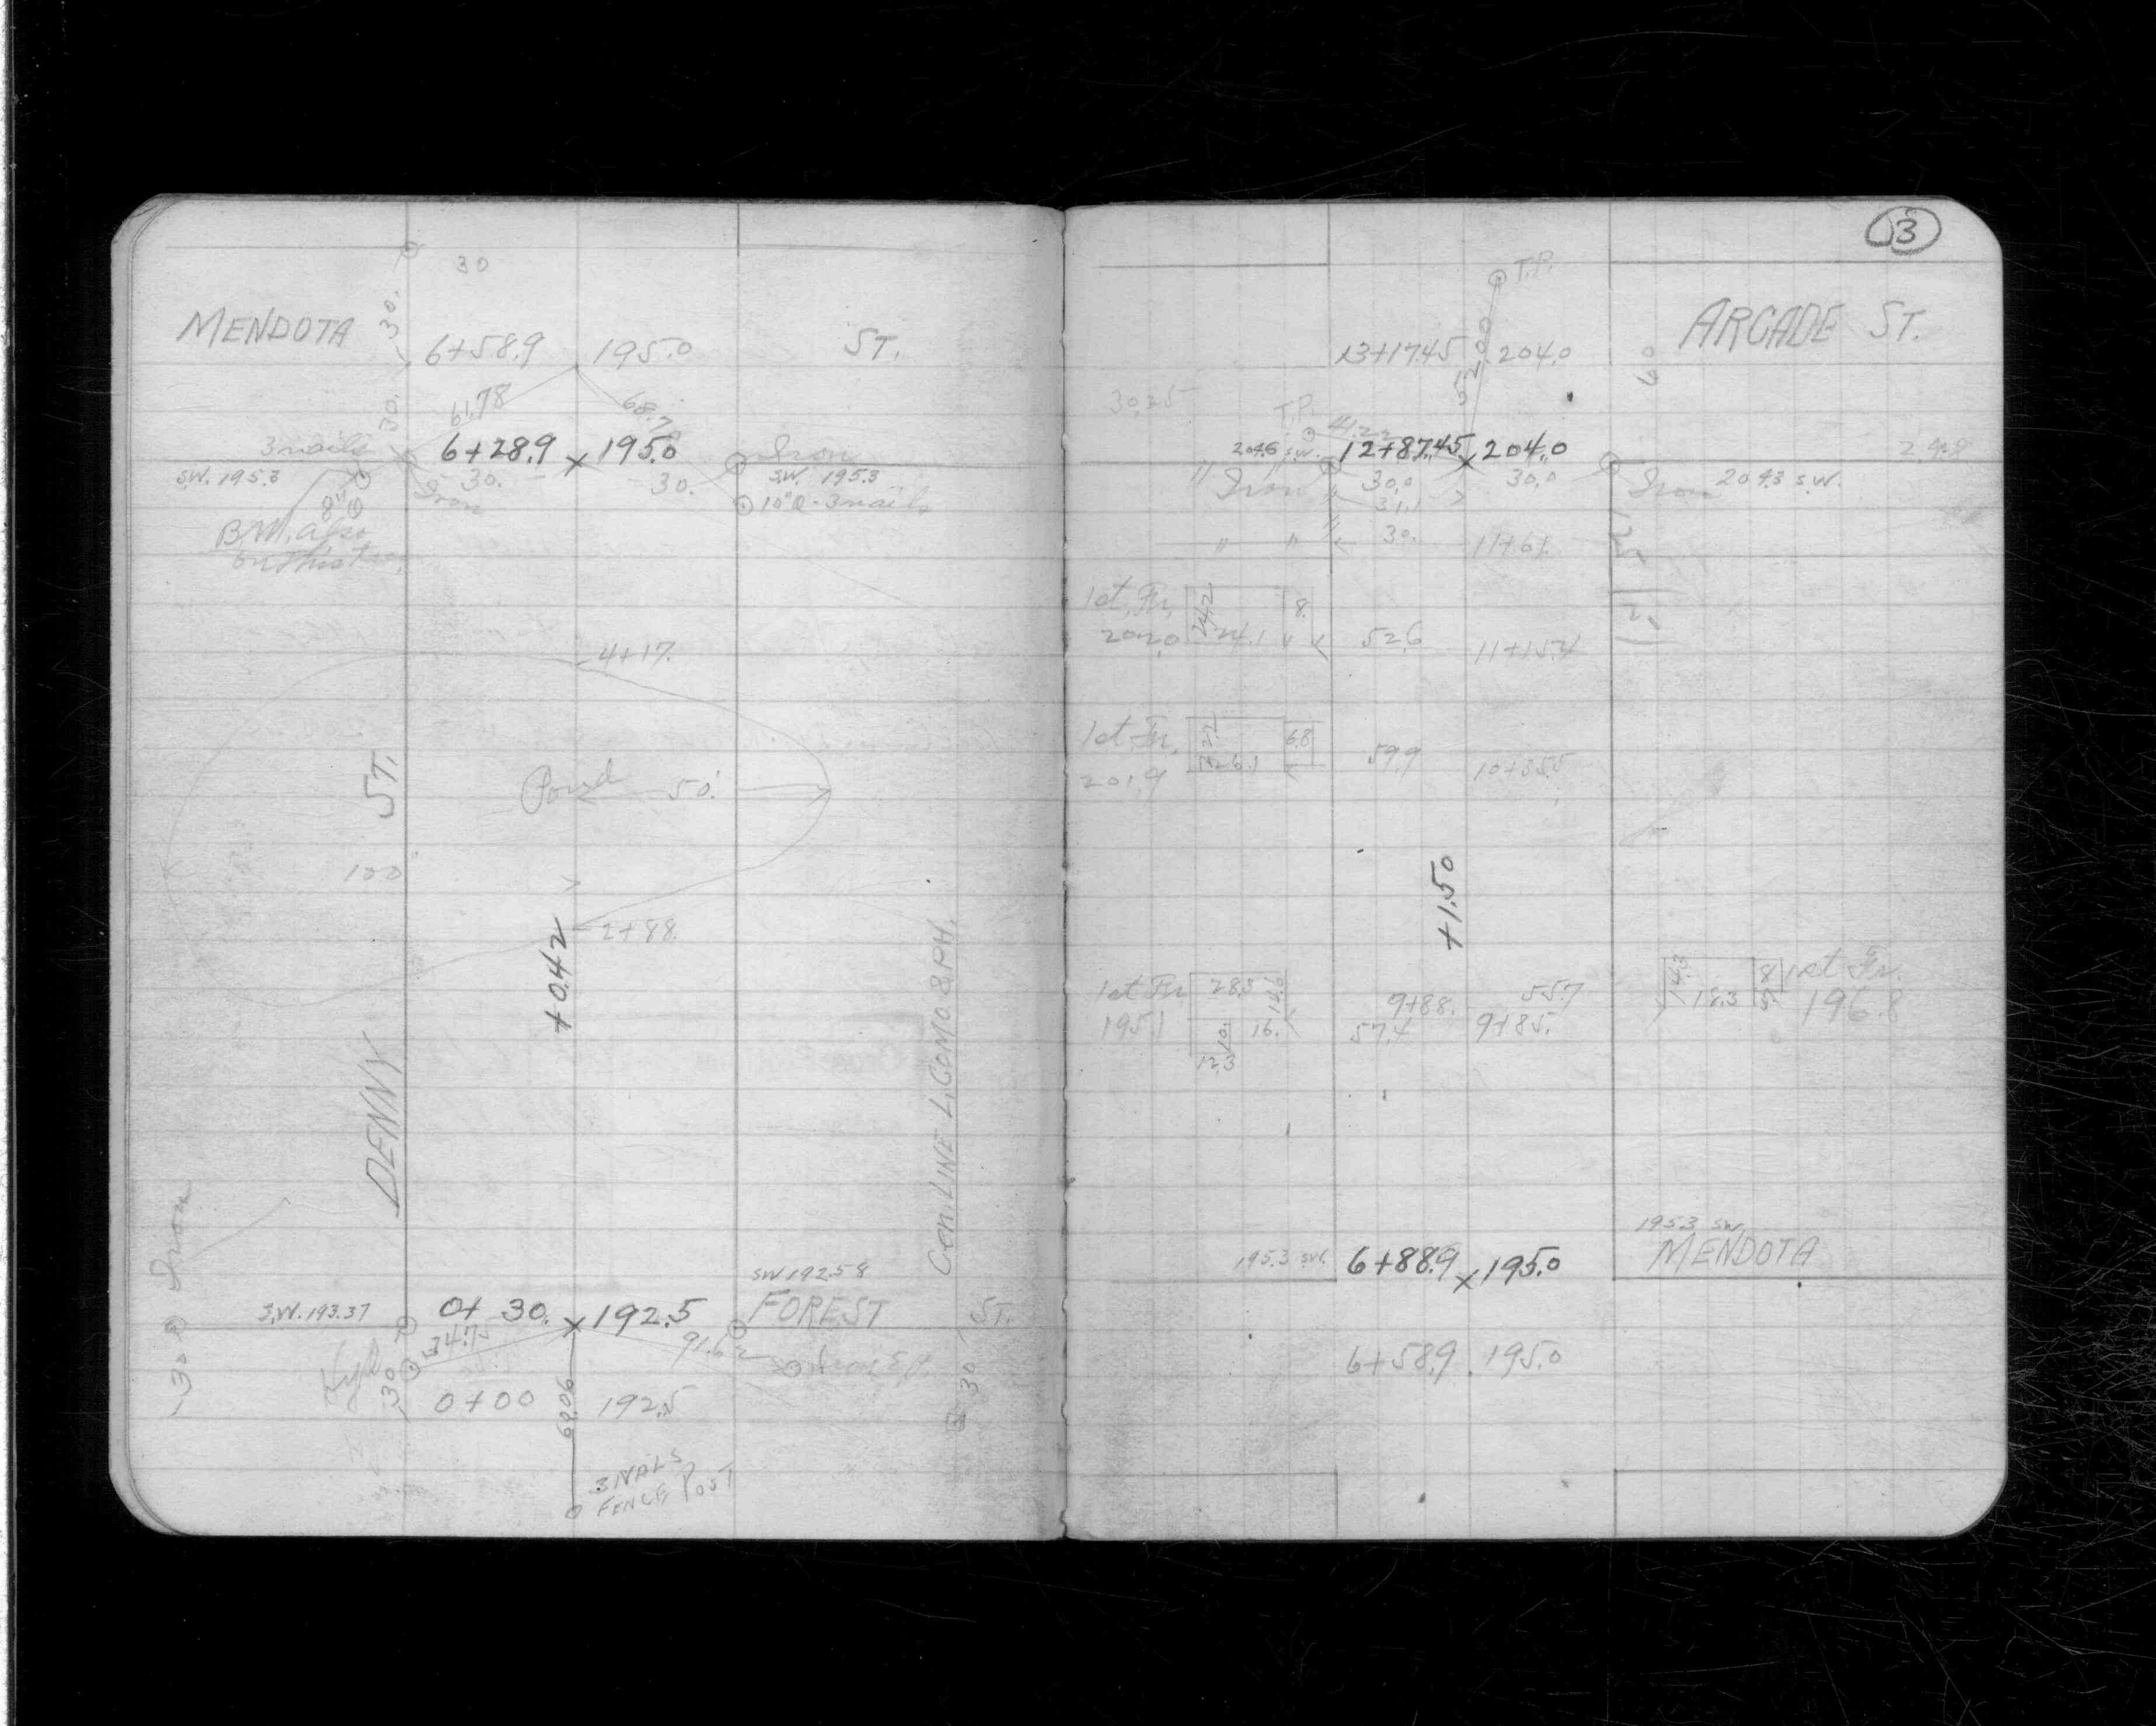 30
MENDOTA
30.
6+58.9
195.0
ST.
61.78
68.7
30.
3 nails
6+28.9 x 195.0
Iron
S.W. 195.3
30.
30.
S.W. 195.3
Iron
8"
10" O-3 nails
B.M. also
on this
4+17.
Pond
50'
ST.
100'
2+88.
+0.42
DENNY
Cen. LINE L. COMO & PH.
Iron
30
SW 192.58
S.W. 193.37
0+30. x 192.5
FOREST
ST.
34.75
91.62
30
30
0+00
192.5
60.06
3 NALS
FENCE POST
3
T.P.
ARCADE ST.
13+17.45
204.0
52.00
60
30.25
T.P.
204.6 S.W.
12+87.45 x 204.0
" Iron "
30.0
30.0
Iron
204.3 S.W.
31.1
" "
30.
11+61.
1st. Fr.
202.0
24.2
24.1
8.
52.6
11+15.4
1st Fr.
201.9
26.1
6.8
59.9
10+35.5
+1.50
1st Fr
195.1
28.3
14.6
16.
10.
12.3
9+88.
57.4
55.7
9+85.
14.3
18.3
1st Fr.
196.8
195.3 SW.
195.3 SW.
6+88.9 x 195.0
MENDOTA
6+58.9
195.0